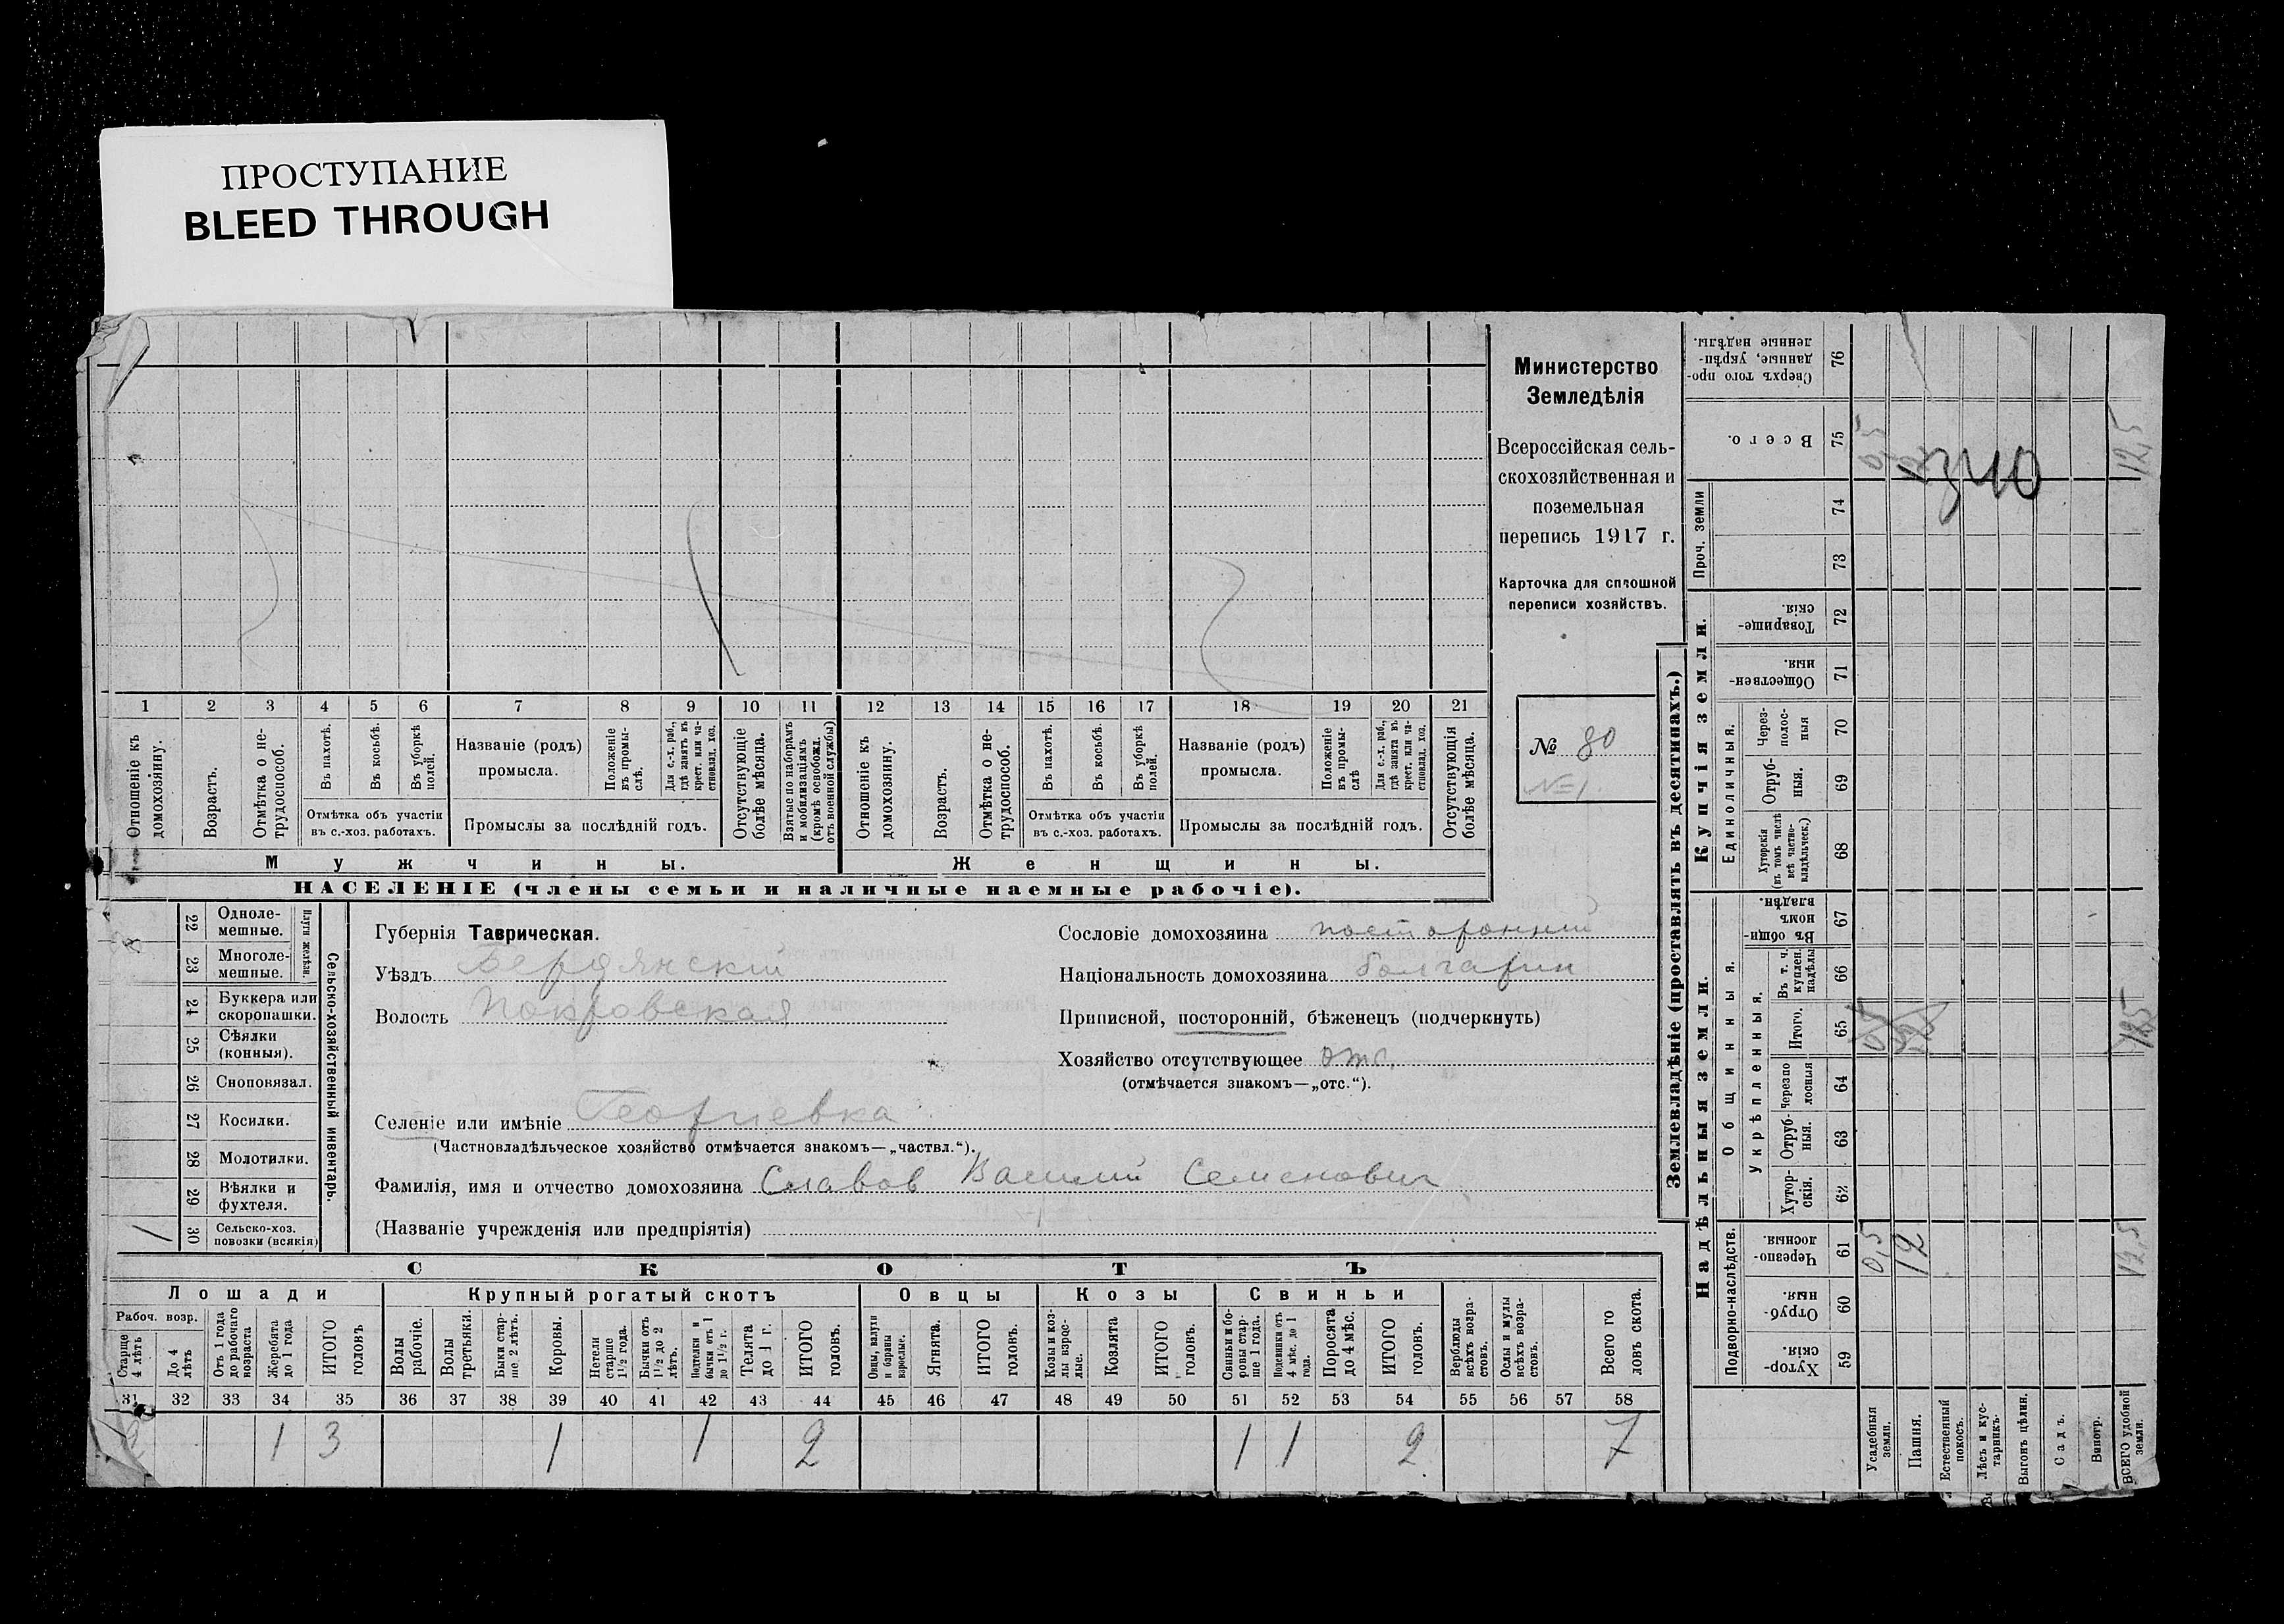 ПРОСТУПАНИЕ
BLEED THROUGH
1 2 3 4 5 6 7 8 9 10 11 12 13 14 15 16 17 18 19 20 21
Отношеніе къ домохозяину.
Возрастъ.
Отмѣтка о нетрудоспособ.
Въ пахотѣ.
Въ косьбѣ.
Въ уборкѣ полей.
Отмѣтка объ участіи
въ с.-хоз. работахъ.
Названіе (родъ)
промысла.
Положеніе въ промыслѣ.
Для с.-х. раб., гдѣ занятъ въ крест. или частновлад. хоз.
Промыслы за послѣдній годъ.
Отсутствующіе болѣе мѣсяца.
Взятые по наборамъ и мобилизаціямъ (кромѣ освобожд. отъ военной службы)
Отношеніе къ домохозяину.
Возрастъ.
Отмѣтка о нетрудоспособ.
Въ пахотѣ.
Въ косьбѣ.
Въ уборкѣ полей.
Отмѣтка объ участіи
въ с.-хоз. работахъ.
Названіе (родъ)
промысла.
Положеніе въ промыслѣ
Для с.-х. раб., гдѣ занята въ крест. или частновлад. хоз.
Промыслы за послѣдній годъ.
Отсутствующія болѣе мѣсяца.
Мужчины.
Женщины.
НАСЕЛЕНІЕ (члены семьи и наличные наемные рабочіе).
Министерство
Земледѣлія
Всероссійская сель-
скохозяйственная и
поземельная
перепись 1917 г.
Карточка для сплошной
переписи хозяйствъ.
№ 80
№ 1.
22 Одноле-
мешные.
23 Многоле-
мешные.
Плуги желѣзн.
24 Буккера или
скоропашки.
25 Сѣялки
(конныя).
26 Сноповязал.
27 Косилки.
28 Молотилки.
29 Вѣялки и
фухтеля.
30 Сельско-хоз.
повозки (всякія) 1
Сельско-хозяйственный инвентарь.
Губернія Таврическая.
Уѣздъ Бердянскій
Волость Покровская
Сословіе домохозяина посторонній
Національность домохозяина болгарин
Приписной, посторонній, бѣженецъ (подчеркнуть)
Хозяйство отсутствующее отс.
(отмѣчается знакомъ—„отс.“).
Селеніе или имѣніе Георгиевка
(Частновладѣльческое хозяйство отмѣчается знакомъ—„частвл.“).
Фамилія, имя и отчество домохозяина Славов Василий Семенович
(Названіе учрежденія или предпріятія)
СКОТЪ
Лошади
Крупный рогатый скотъ
Овцы
Козы
Свиньи
Рабоч. возр.
Старше 4 лѣтъ
До 4 лѣтъ
Отъ 1 года до рабочаго возраста
Жеребята до 1 года
ИТОГО головъ
Волы рабочіе.
Волы третьяки.
Быки старше 2 лѣтъ.
Коровы.
Нетели старше 1½ года.
Бычки отъ 1½ до 2 лѣтъ.
Подтелки и бычки отъ 1 до 1½ г.
Телята до 1 г.
ИТОГО головъ.
Овцы, валухи и бараны взрослые.
Ягнята.
ИТОГО головъ.
Козы и козлы взрослые.
Козлята
ИТОГО головъ.
Свиньи и боровы старше 1 года.
Подсвинки отъ 4 мѣс. до 1 года.
Поросята до 4 мѣс.
ИТОГО головъ.
Верблюды всѣхъ возрастовъ.
Ослы и мулы всѣхъ возрастовъ.
Всего головъ скота.
31 32 33 34 35 36 37 38 39 40 41 42 43 44 45 46 47 48 49 50 51 52 53 54 55 56 57 58
2 1 3 1 1 2 1 1 2 7
Землевладѣніе (проставлять въ десятинахъ.)
Купчія земли.
Надѣльныя земли.
Сверхъ того проданные, укрѣпленные надѣлы. 76
Всего. 75 0,5 12,5
3210
Проч. земли 74
73
Товарищескія. 72
Общественныя. 71
Единоличныя.
Черезполосныя 70
Отрубныя. 69
Хуторскія (въ томъ числѣ всѣ частновладѣльческ.) 68
Общинныя.
Въ общинномъ владѣн. 67
Укрѣпленныя.
Въ т. ч. куплен. надѣлы 66
Итого. 65 12,5
Черезполосныя 64
Отрубныя. 63
Хуторскія. 62
Подворно-наслѣдств.
Черезполосныя. 61 0,5 12 12,5
Отрубныя. 60
Хуторскія. 59
Усадебныя земли.
Пашня.
Естественный покосъ.
Лѣсъ и кустарникъ.
Выгонъ цѣлин.
Садъ.
Виногр.
ВСЕГО удобной земли.